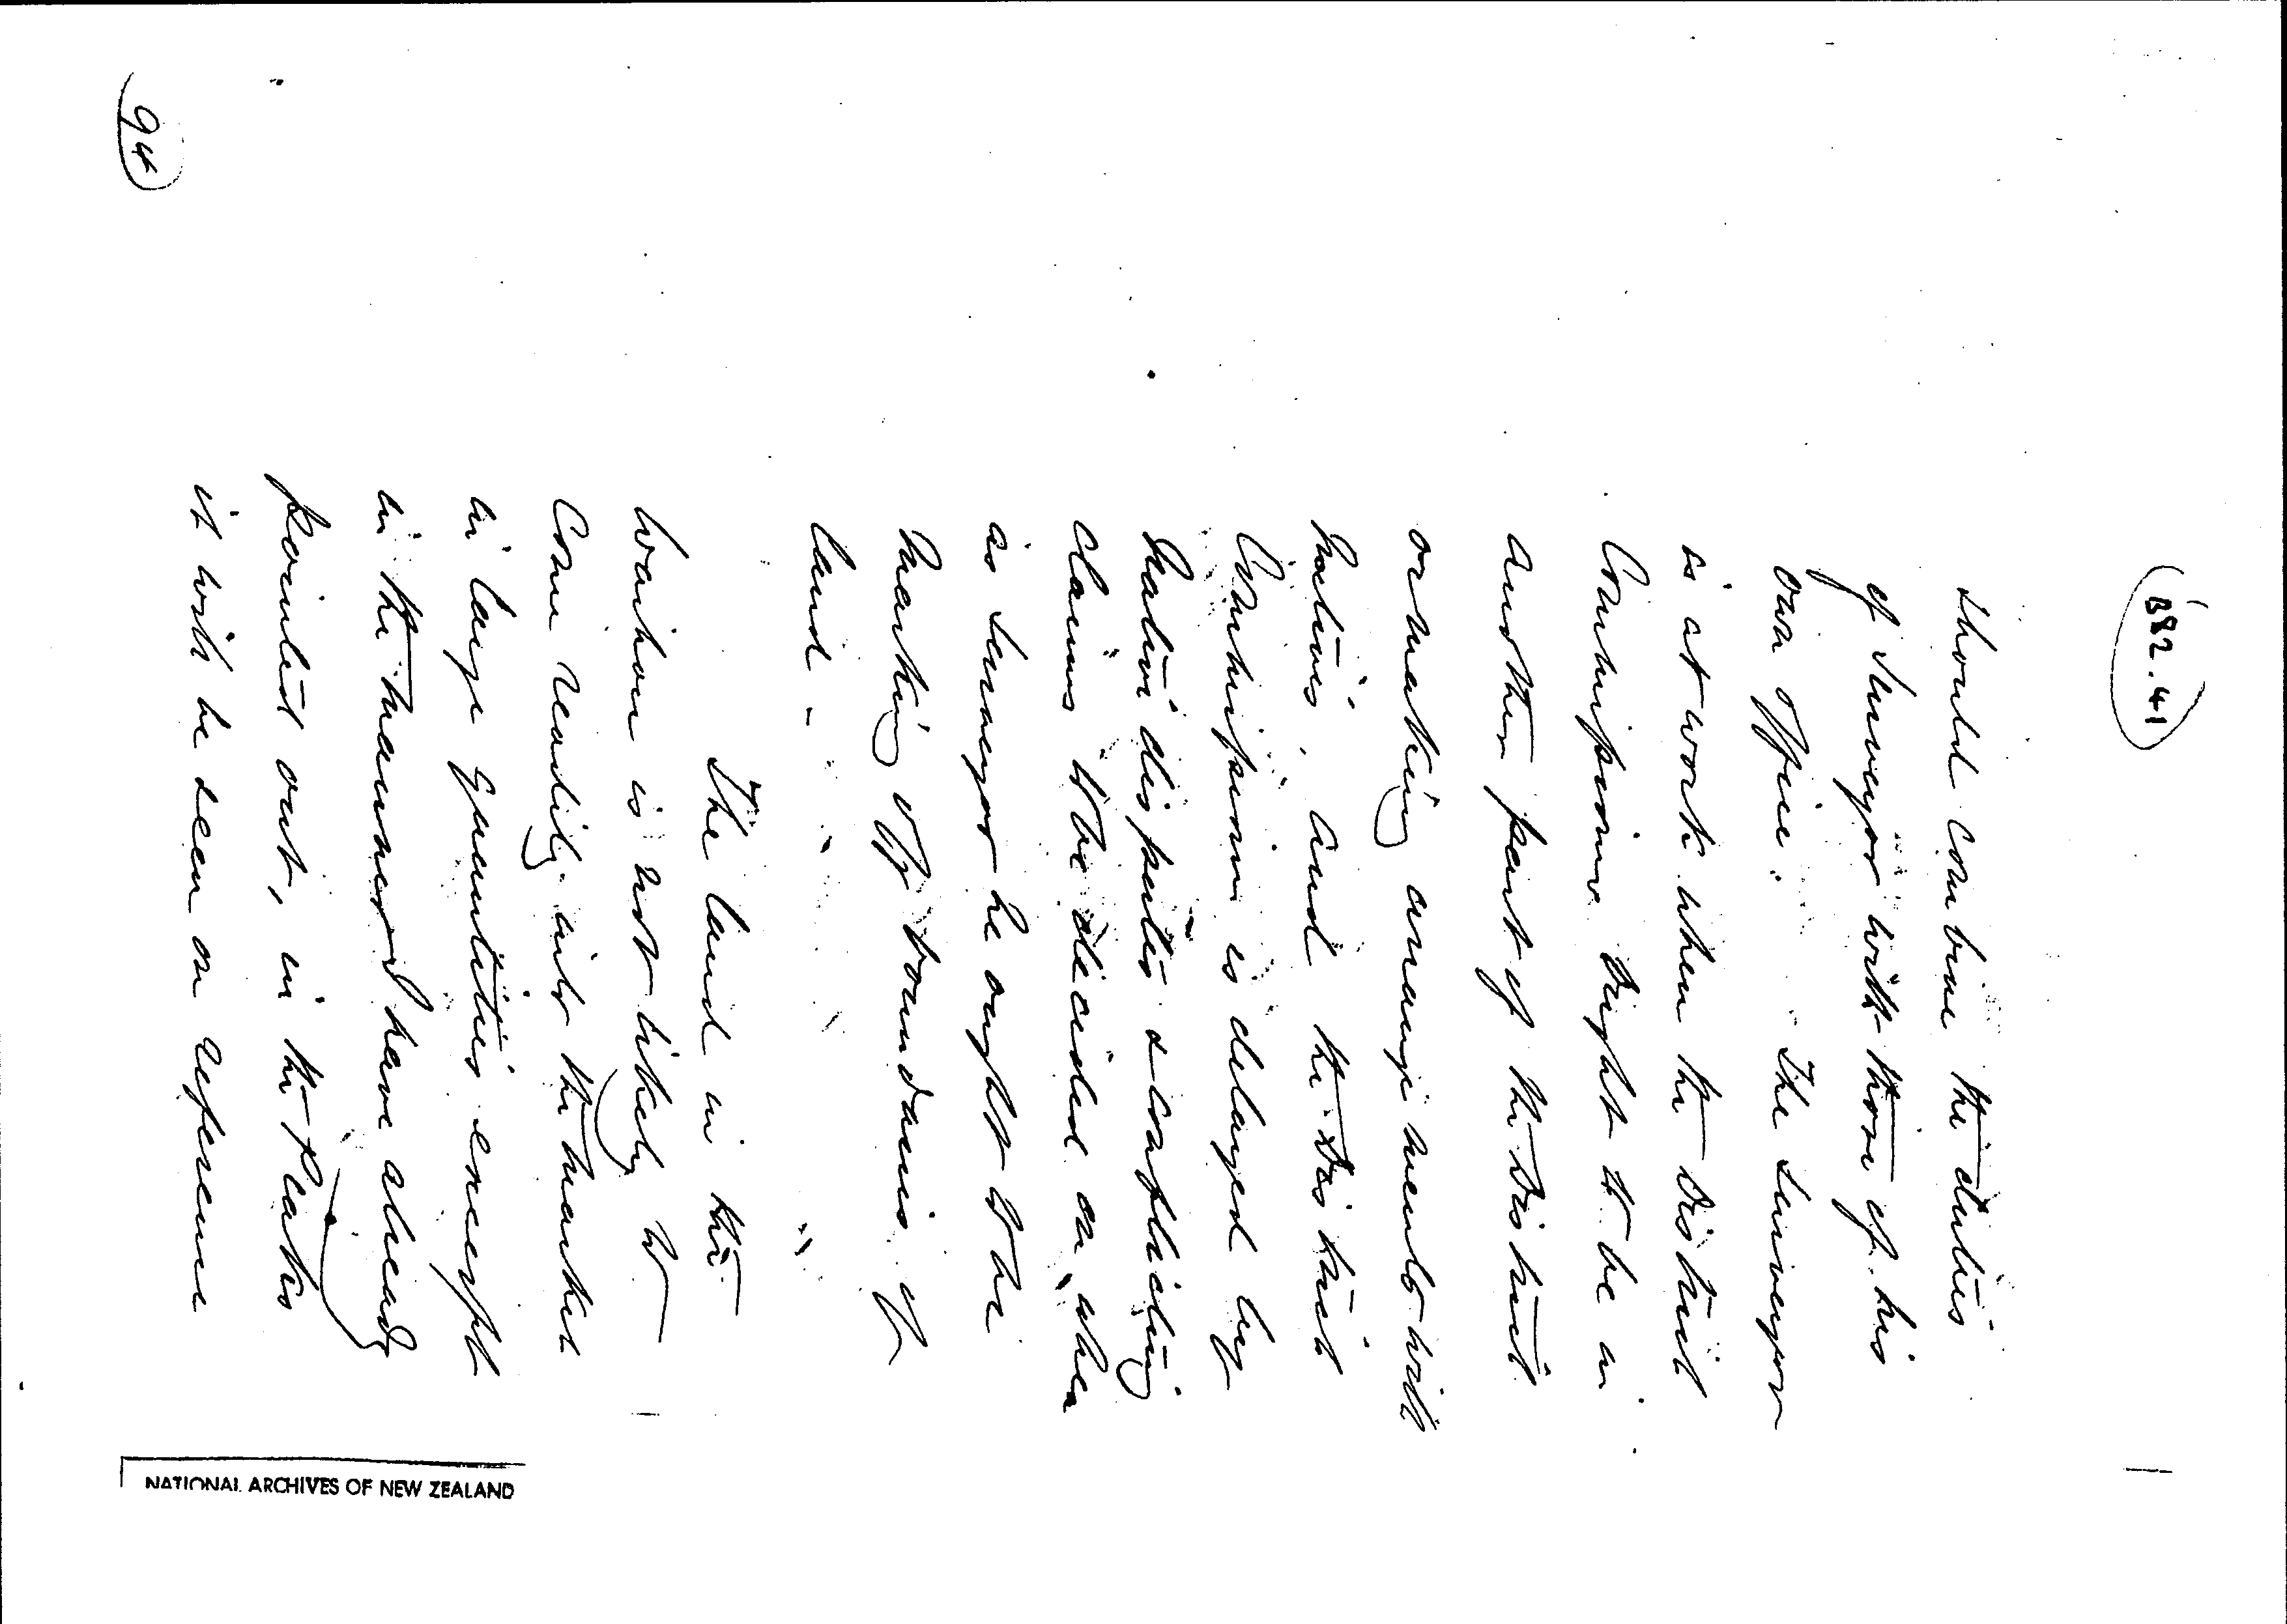 B82.41
should combine the duties
of Surveyor with those of his
own office. The Surveyor
is at work when the District
Commissioner ought to be in
another part of the District
or making arrangements with
Natives, and the District
Commissioner is delayed by
Native disputes & conflicting
claims to be decided on when
as Surveyor he ought to be
marking off boundaries of
land -
The land in the
is not likely to
come readily into the market
in large quantities except
in the manner I have already
pointed out, in the
it will be seen on reference
94
NATIONAL ARCHIVES OF NEW ZEALAND